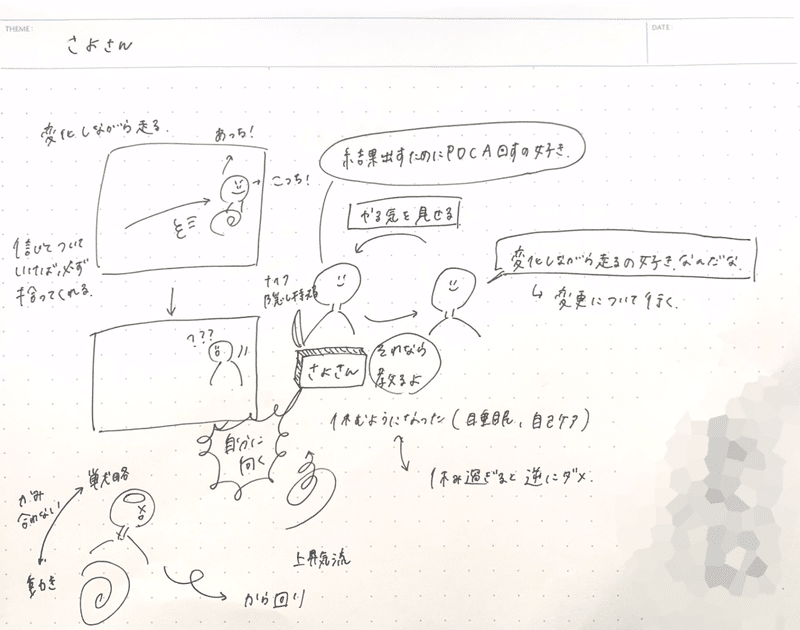 THEME:
さよさん
DATE:
変化しながら走る.
あっち!
こっち!
信じてついて
いけば必ず
拾ってくれる.
???
結果出すためにPDCA回すの好き.
やる気を見せる
変化しながら走るの好き.なんだな.
↳ 変更について行く.
ナイフ
隠し持ってる
さよさん
それなら
教えるよ
自分に
向く
休むようになった(睡眠、自己ケア)
休み過ぎると逆にダメ.
戦略
かみ
合わない
動き
から回り
上昇気流